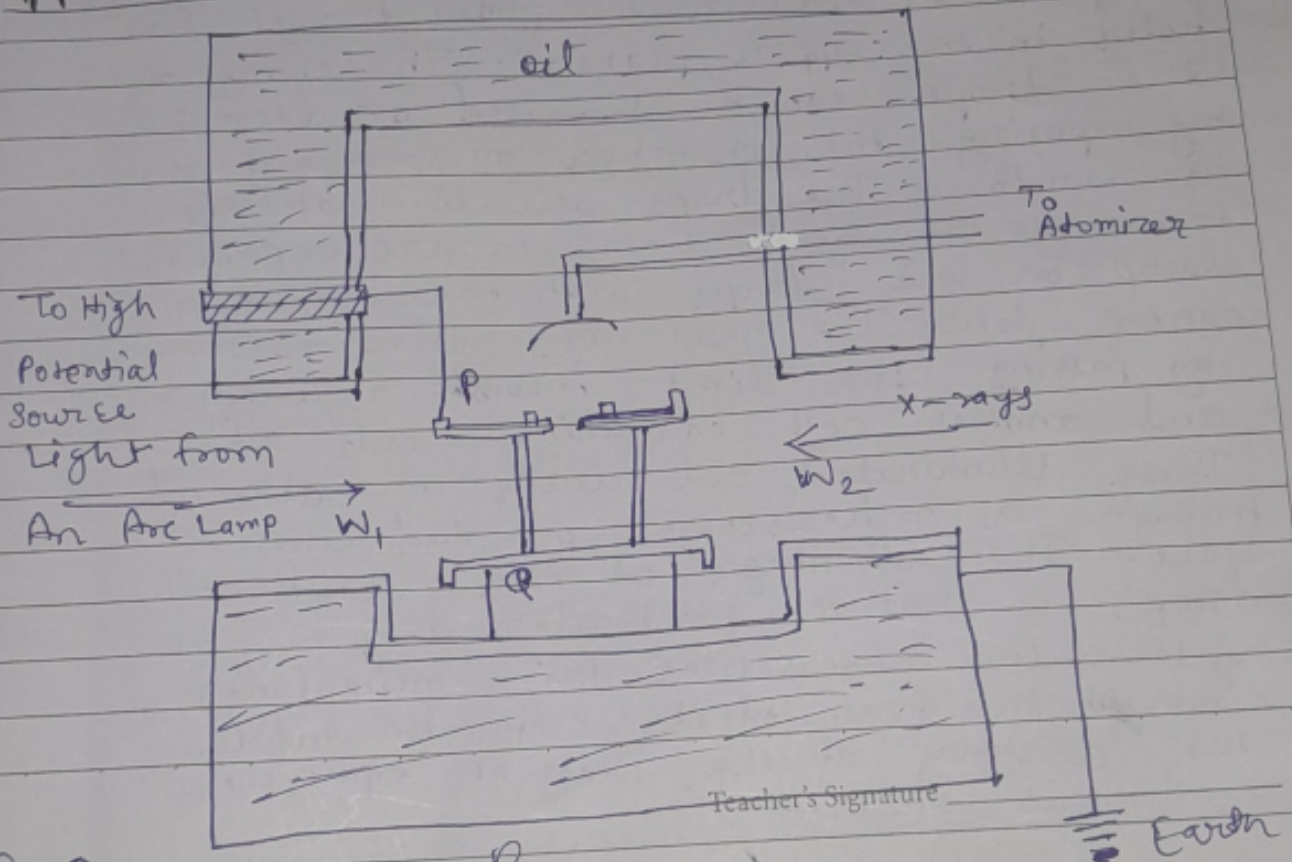 oil
To
Atomizer
To High
Potential
Source
P
X-rays
W2
Light from
An Arc Lamp W1
Q
Teacher's Signature
Earth